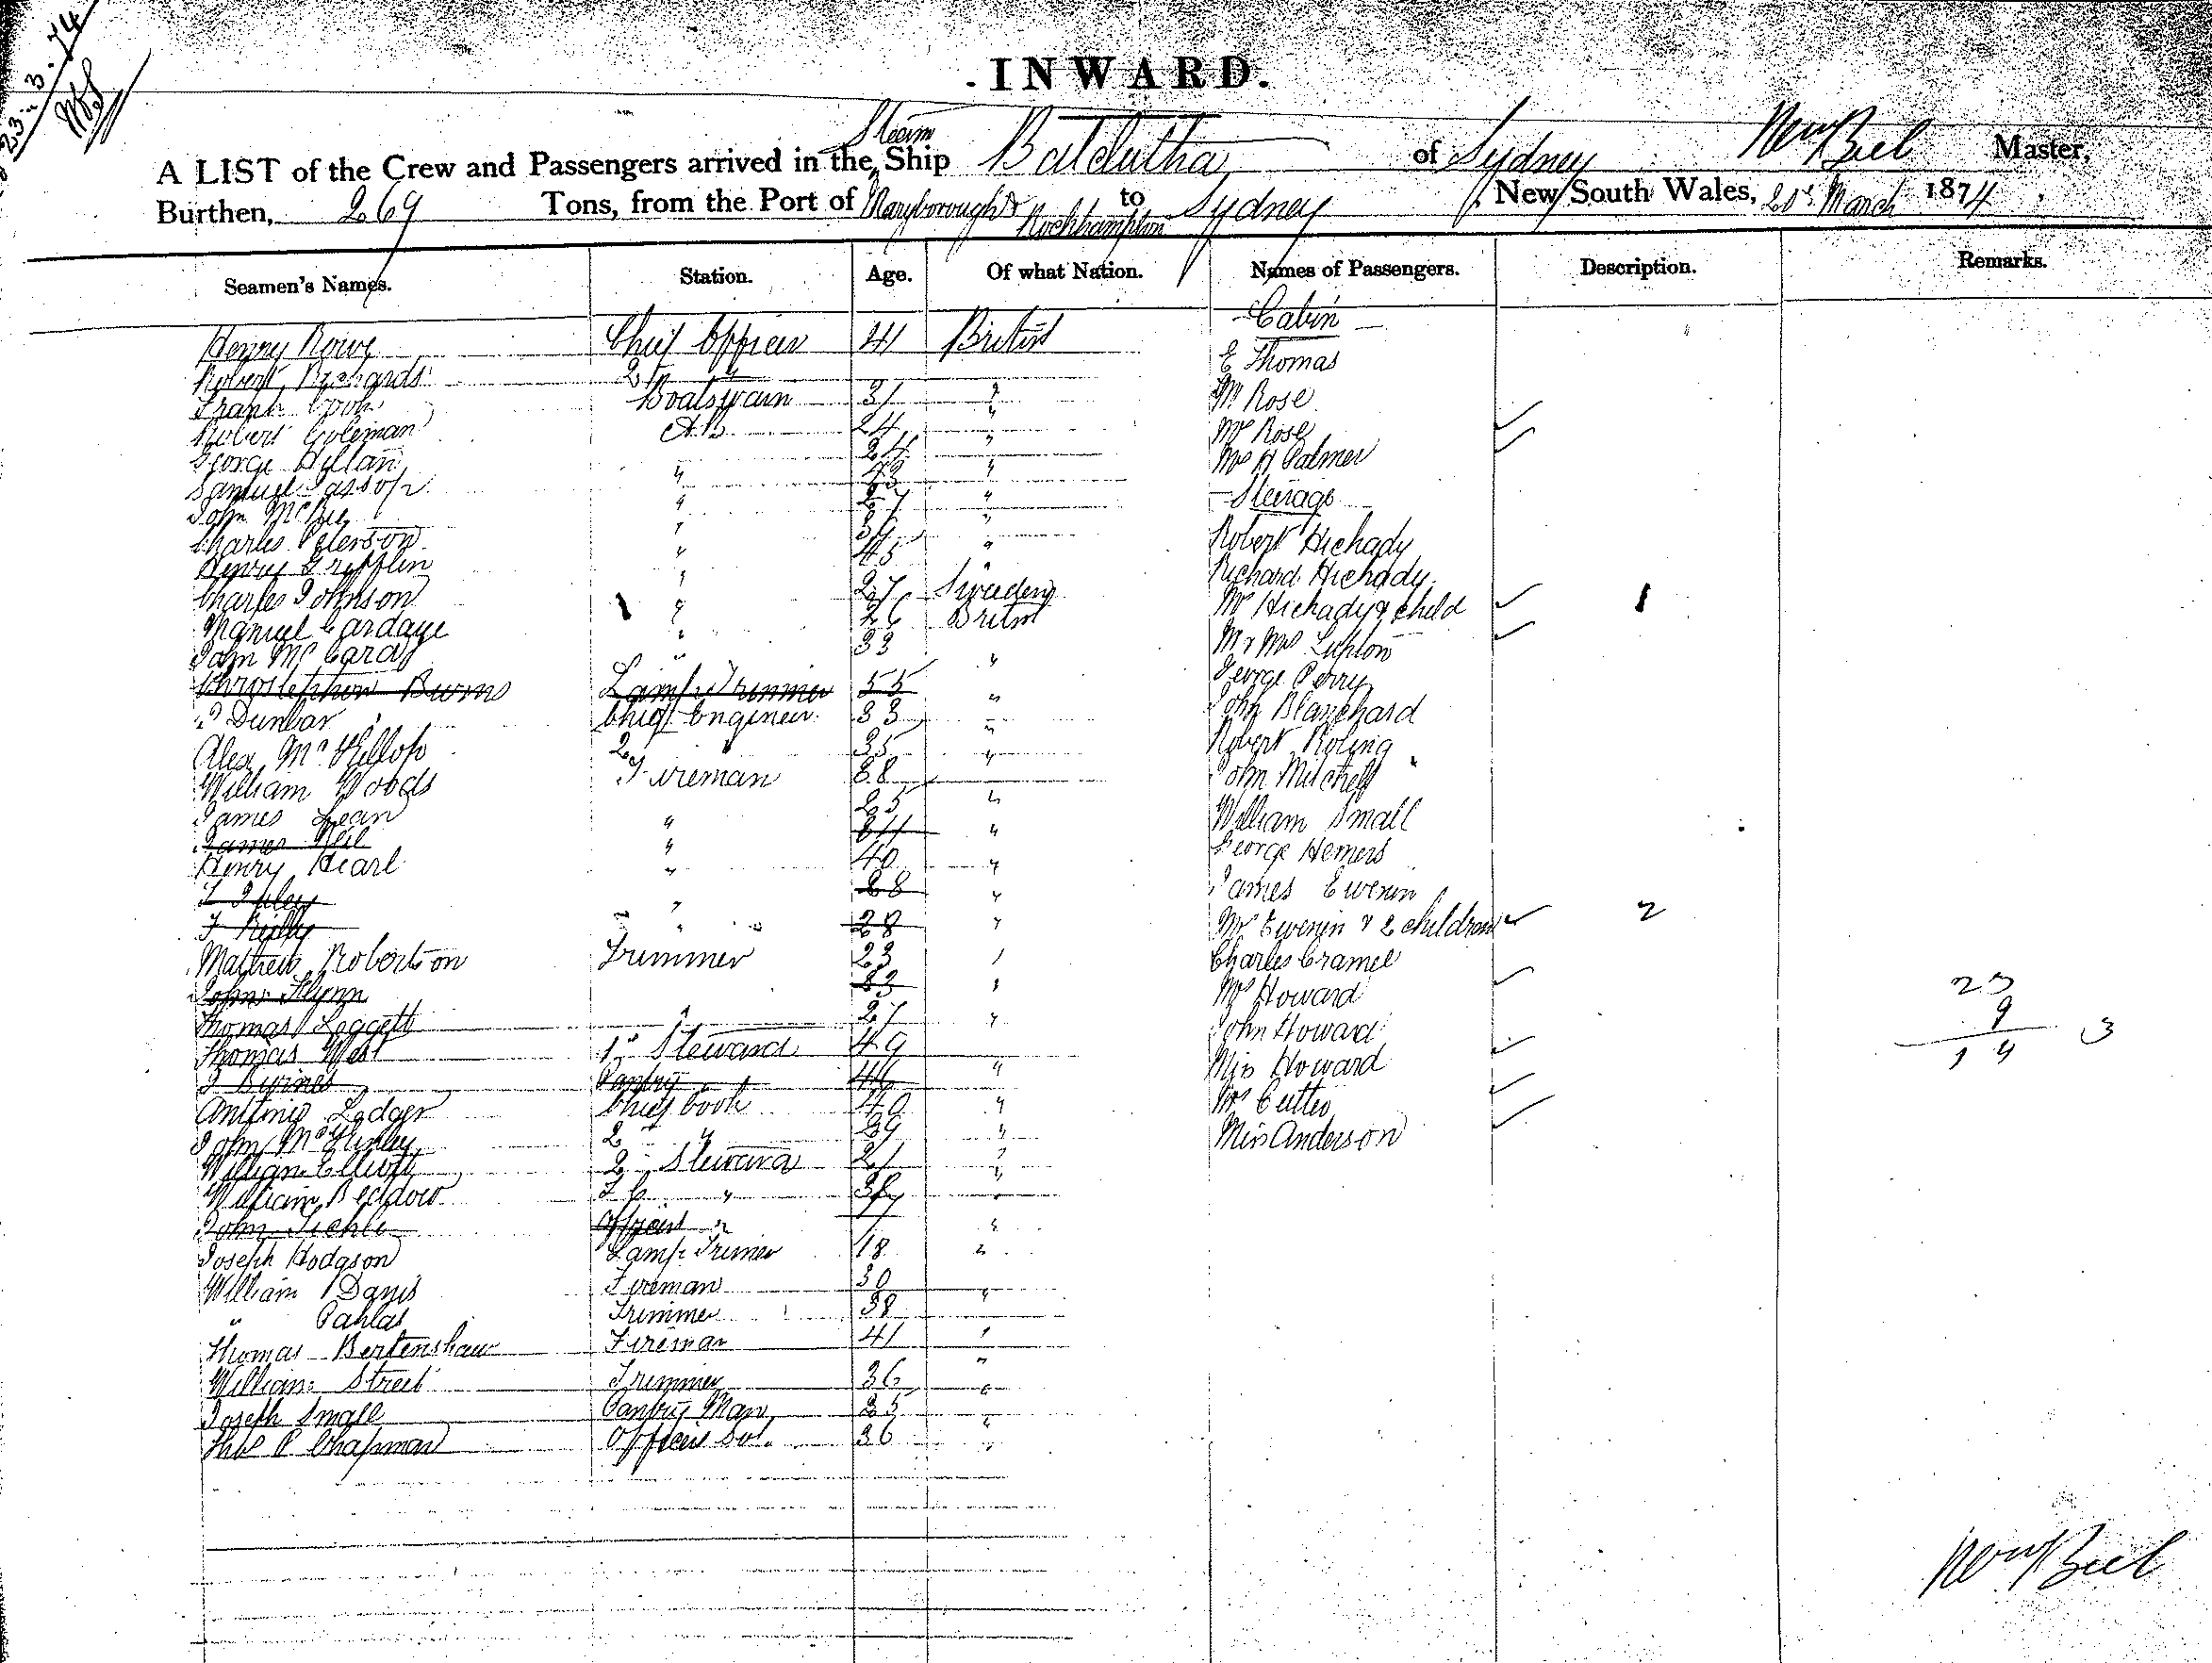 23.3.74
INWARD.
A LIST of the Crew and Passengers arrived in the Steam Ship Balclutha of Sydney Master,
Burthen, 269 Tons, from the Port of Maryborough & Rockhampton to Sydney New South Wales, 20th March 1874
Seamen's Names. Station. Age. Of what Nation. Names of Passengers. Description. Remarks.
Cabin
Henry Rowe Chief Officer 41 British
E Thomas
Robert Richards 2nd "
Frank Cook Boatswain 31 "
Mr Rose
Robert Coleman AB 24 "
Mrs Rose
George 24 "
Mrs H Palmer
Samuel " 43 "
Steerage
John McKie " 27 "
Charles Peterson " 34 "
Robert Hichady
Henry Griffin " 45 "
Richard Hichady
Charles Johnson " 27 Sweden
Mrs Hichady & child 1
Manuel Cardaye " 26 British
Mr & Mrs Lupton
John McCardy " 33 "
George Perry
Christopher Burns Lamp Trimmer 55 "
John Blanchard
Dunbar Chief Engineer 33 "
Robert Roling
Alex McKillop 2 " 35 "
John Mitchell
William Woods Fireman 38
William Small
James Lean " 25 "
George Hemers
James Neil " "
Henry Hearl " 40 "
James Ewenin
28 "
Mrs Ewenin & 2 children 2
T Reilly " 28 "
Charles Cramel
Mathew Robertson Trimmer 23 "
Mrs Howard
John Flynn 23 "
23
Thomas Leggett " 27 "
John Howard
9
Thomas West 1st Steward 49
Miss Howard
14 3
J Byrines Pantry 44 "
Mrs Cutter
Antonio Ledger Chief Cook 40 "
Miss Anderson
John McGinley 2 " 39 "
William Elliott 2 Steward 21 "
William Beddow "
John Officers " "
Joseph Hodgson Lamp Trimer 18 "
William Davis Fireman 30 "
" Pahlat Trimmer 38
Thomas Bertenshaw Fireman 41 "
William Street Trimmer 36 "
Joseph Small Pantry Man 25 "
Thos P Chapman Officers Svt. 36 "